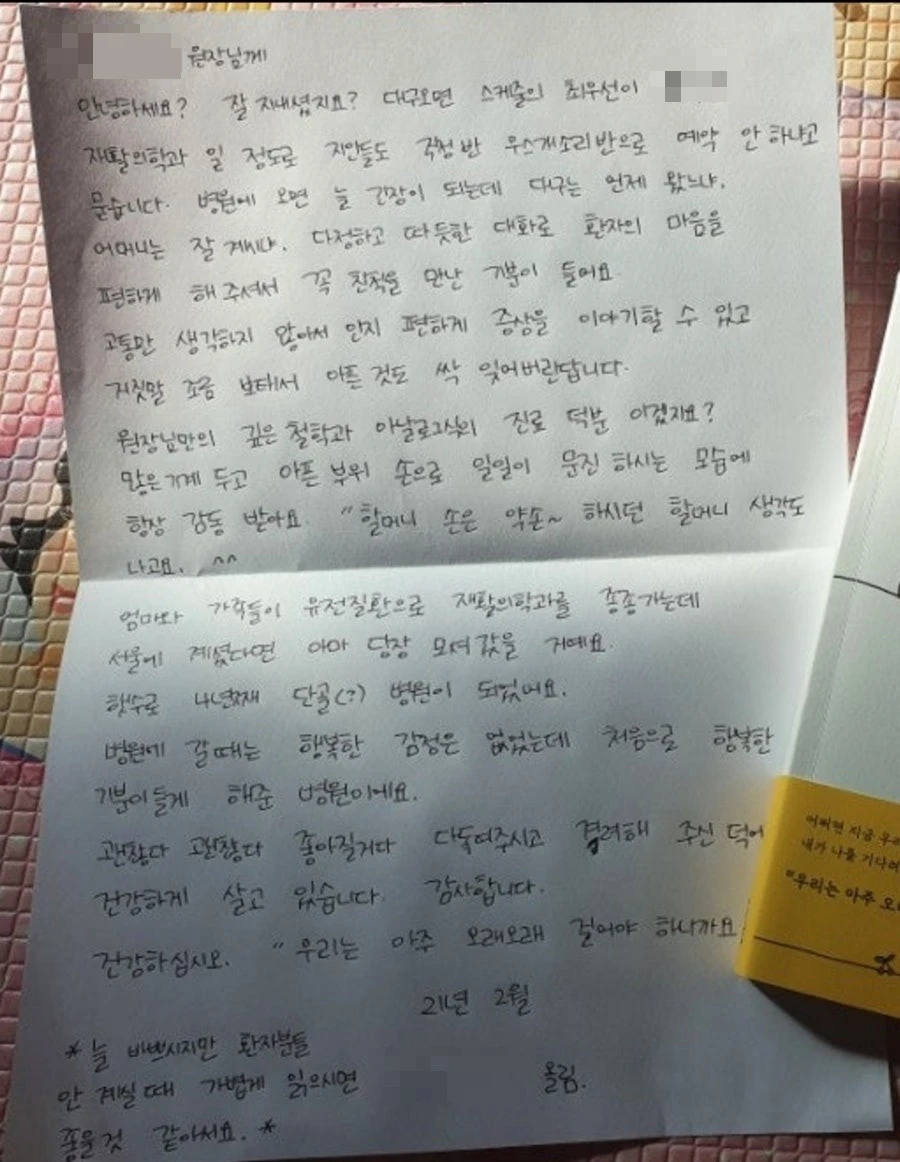 원장님께
안녕하세요? 잘 지내셨지요? 대구오면 스케줄의 최우선이
재활의학과 일 정도로 지인들도 걱정 반 우스게소리 반으로 예약 안 하냐고
묻습니다. 병원에 오면 늘 긴장이 되는데 대구는 언제 왔느냐,
어머니는 잘 계시냐. 다정하고 따듯한 대화로 환자의 마음을
편하게 해 주셔서 꼭 친척을 만난 기분이 들어요.
고통만 생각하지 않아서 인지 편하게 증상을 이야기할 수 있고
거짓말 조금 보태서 아픈 것도 싹 잊어버린답니다.
원장님만의 깊은 철학과 아날로그식의 진료 덕분 이겠지요?
많은 기계 두고 아픈 부위 손으로 일일이 문진 하시는 모습에
항상 감동 받아요. "할머니 손은 약손~ 하시던 할머니 생각도
나고요. ^^
엄마와 가족들이 유전질환으로 재활의학과를 종종가는데
서울에 계셨다면 아마 당장 모셔갔을 거예요.
햇수로 4년째 단골(?) 병원이 되었어요.
병원에 갈때는 행복한 감정은 없었는데 처음으로 행복한
기분이들게 해준 병원이에요.
괜찮다 괜찮다 좋아질거다 다독여주시고 격려해 주신 덕에
건강하게 살고 있습니다. 감사합니다.
건강하십시오. "우리는 아주 오래오래 걸어야 하니까요
21년 2월
*늘 바쁘시지만 환자분들
안 계실 때 가볍게 읽으시면
좋을것 같아서요.*
올림.
어쩌면 지금 우리
내가 나를 기다려
"우리는 아주 오래